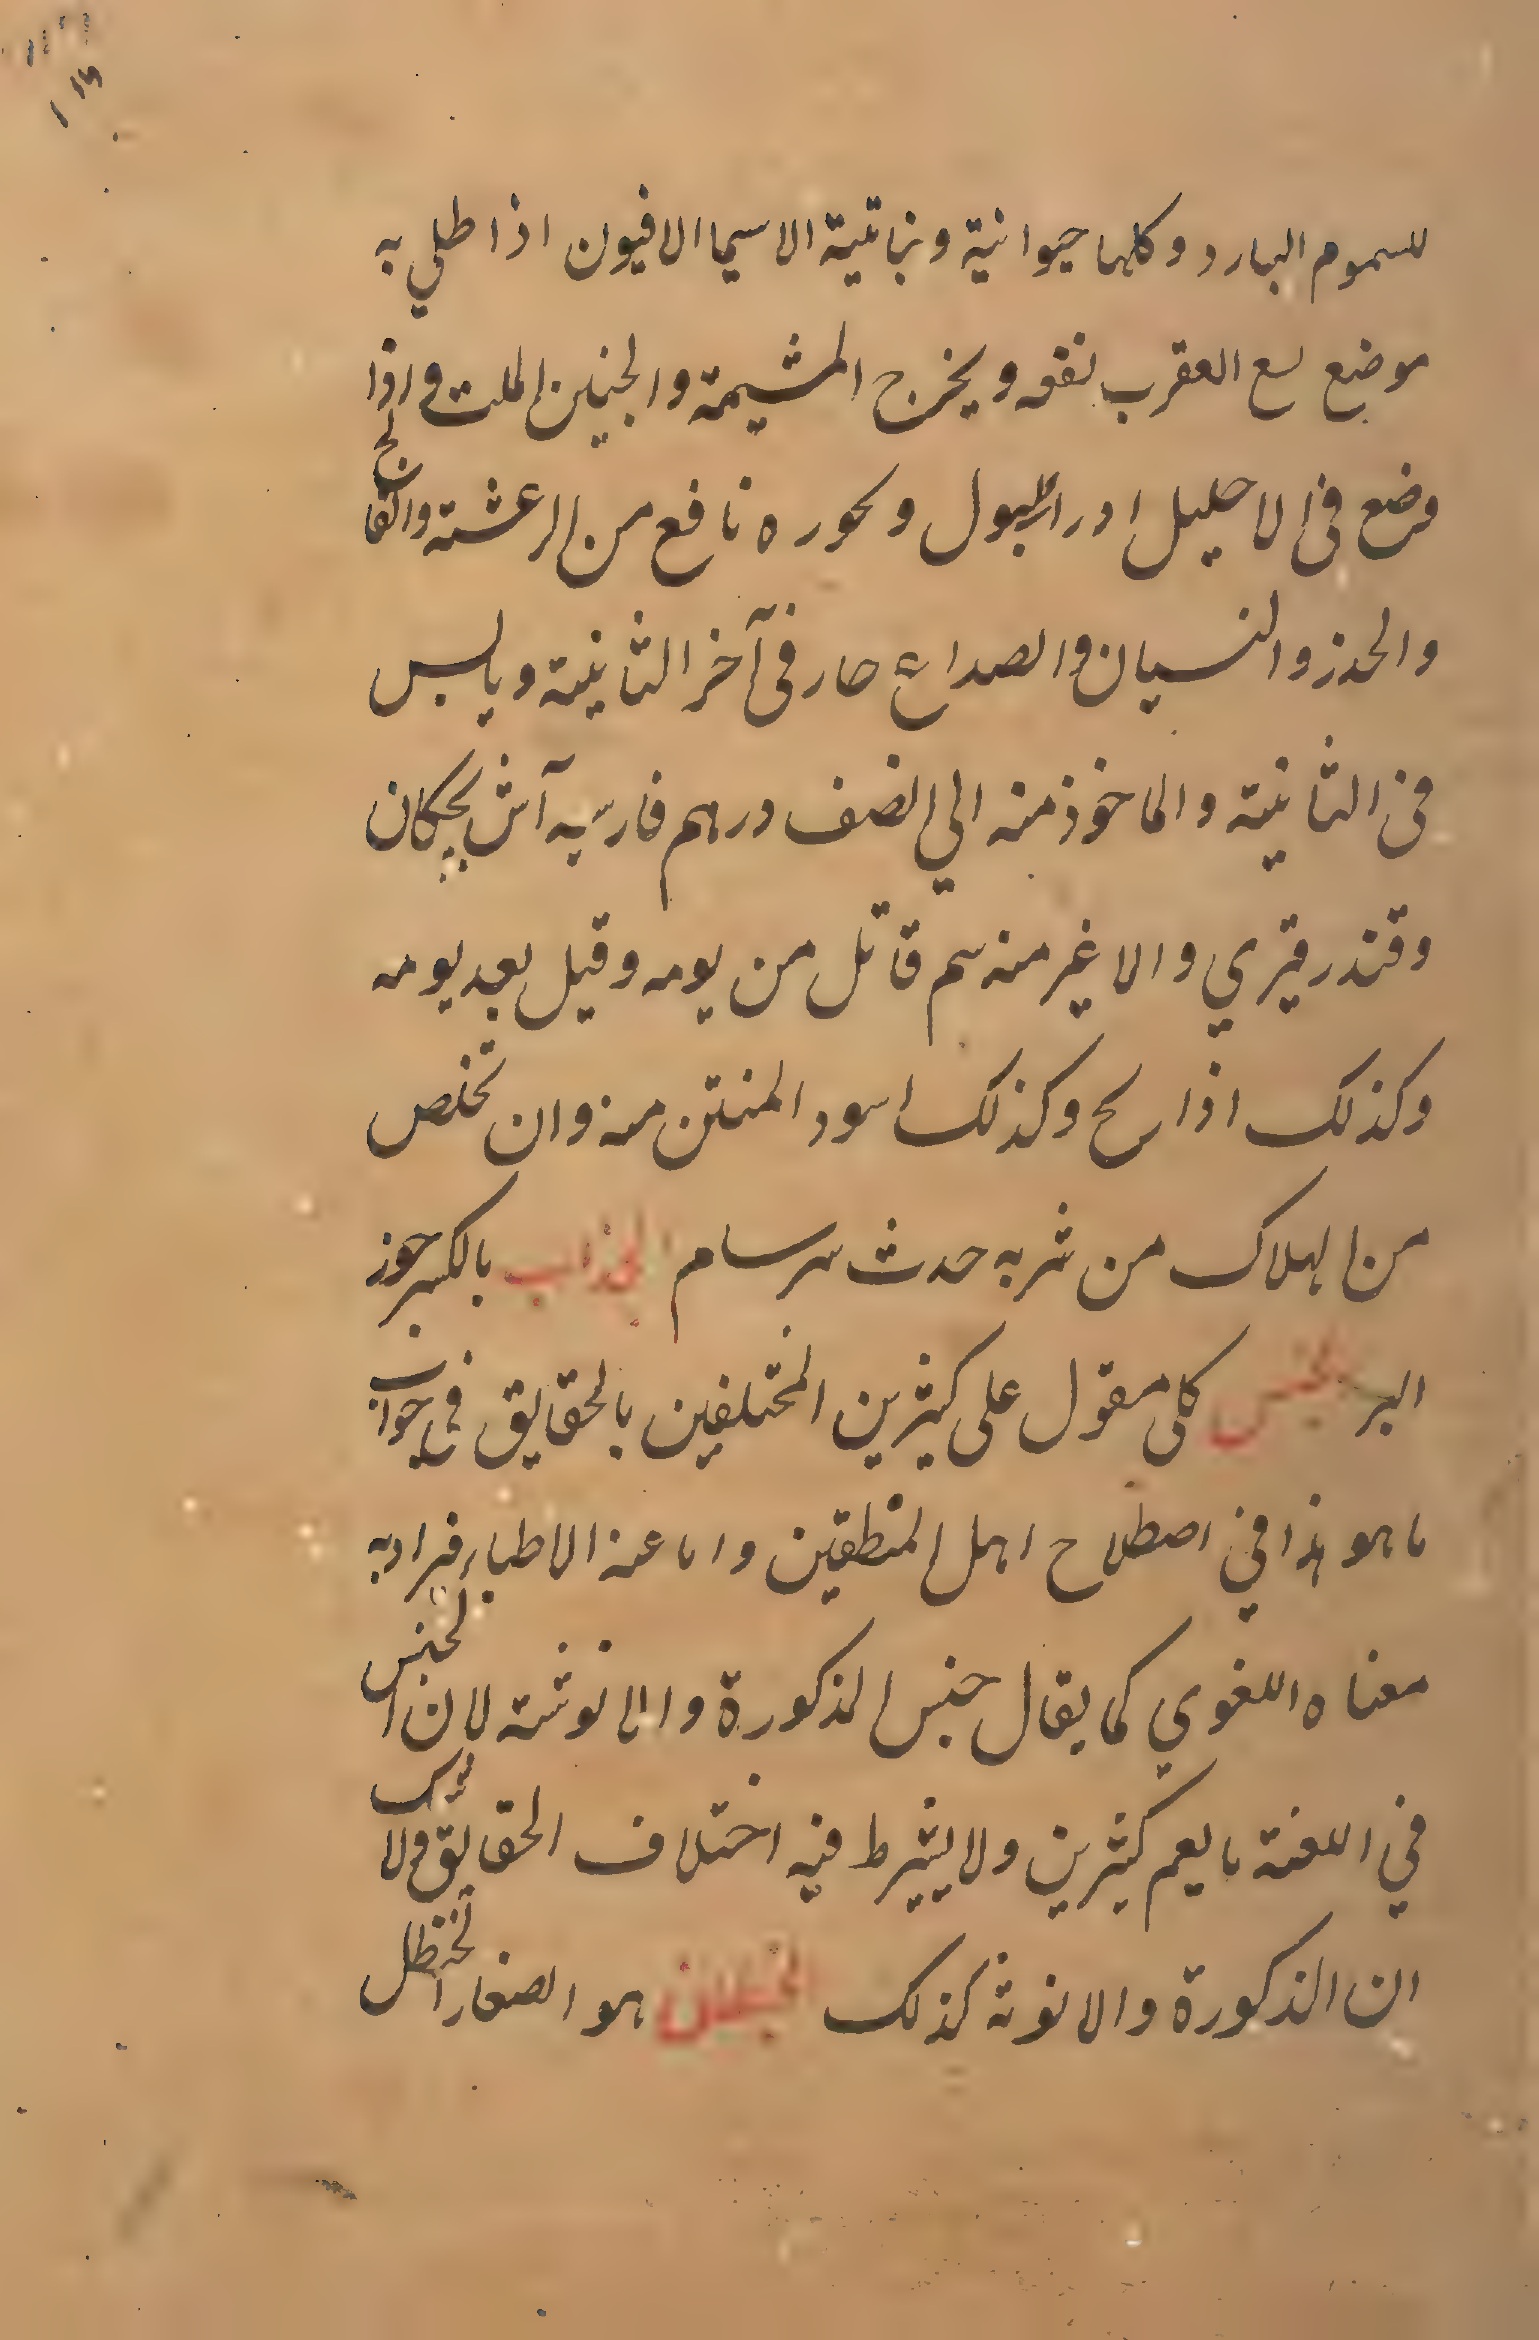 للسموم البارد وكلها حيوانية ونباتية الاسيما الافيون اذا طلي به
موضع لسع العقرب نفعه ويخرج المشيمة والجنين الميت واذا
وضع فى الاحليل ادر البول وبخوره نافع من الرعشة والفالج
والخدر والنسيان والصداع حار فى آخر الثانية ويابس
فى الثانية والماخوذ منه الي نصف درهم فارسيه آش بچكان
وقندر قيري والاغير منه سم قاتل من يومه وقيل بعد يومه
وكذلك اذا كح وكذلك اسود المنتن منه وان تخلص
من الهلاك من شربه حدث سرسام الجذاب بالكسر جوز
البر الجنس كلى مقول على كثيرين المختلفين بالحقايق فى جواب
ما هو هذا في اصطلاح اهل المنطقين واما عند الاطباء فيراد به
معناه اللغوي كما يقال جنس الذكورة والانوثة لان الجنس
في اللغة ما يعم كثيرين ولا يشترط فيه اختلاف الحقايق ولا شك
ان الذكورة والانوثة كذلك هو الصغار الحنظل